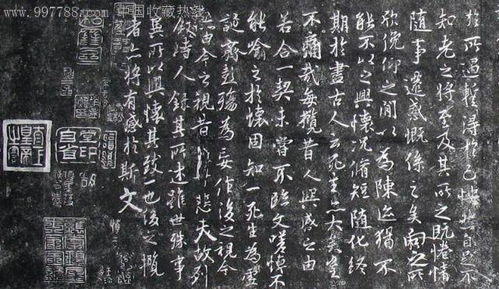 www.997788.com 中国收藏热线
於所遇暫得於己怏然自足不
知老之將至及其所之既惓情
隨事遷感慨係之矣向之所
欣俛仰之間以為陳迹猶不
能不以之興懷況脩短隨化終
期於盡古人云死生亦大矣豈
不痛哉每攬昔人興感之由
若合一契未嘗不臨文嗟悼不
能喻之於懷固知一死生為虛
誕齊彭殤為妄作後之視今
亦由今之視昔悲夫故列
敘時人錄其所述雖世殊事
異所以興懷其致一也後之攬
者亦將有感於斯文